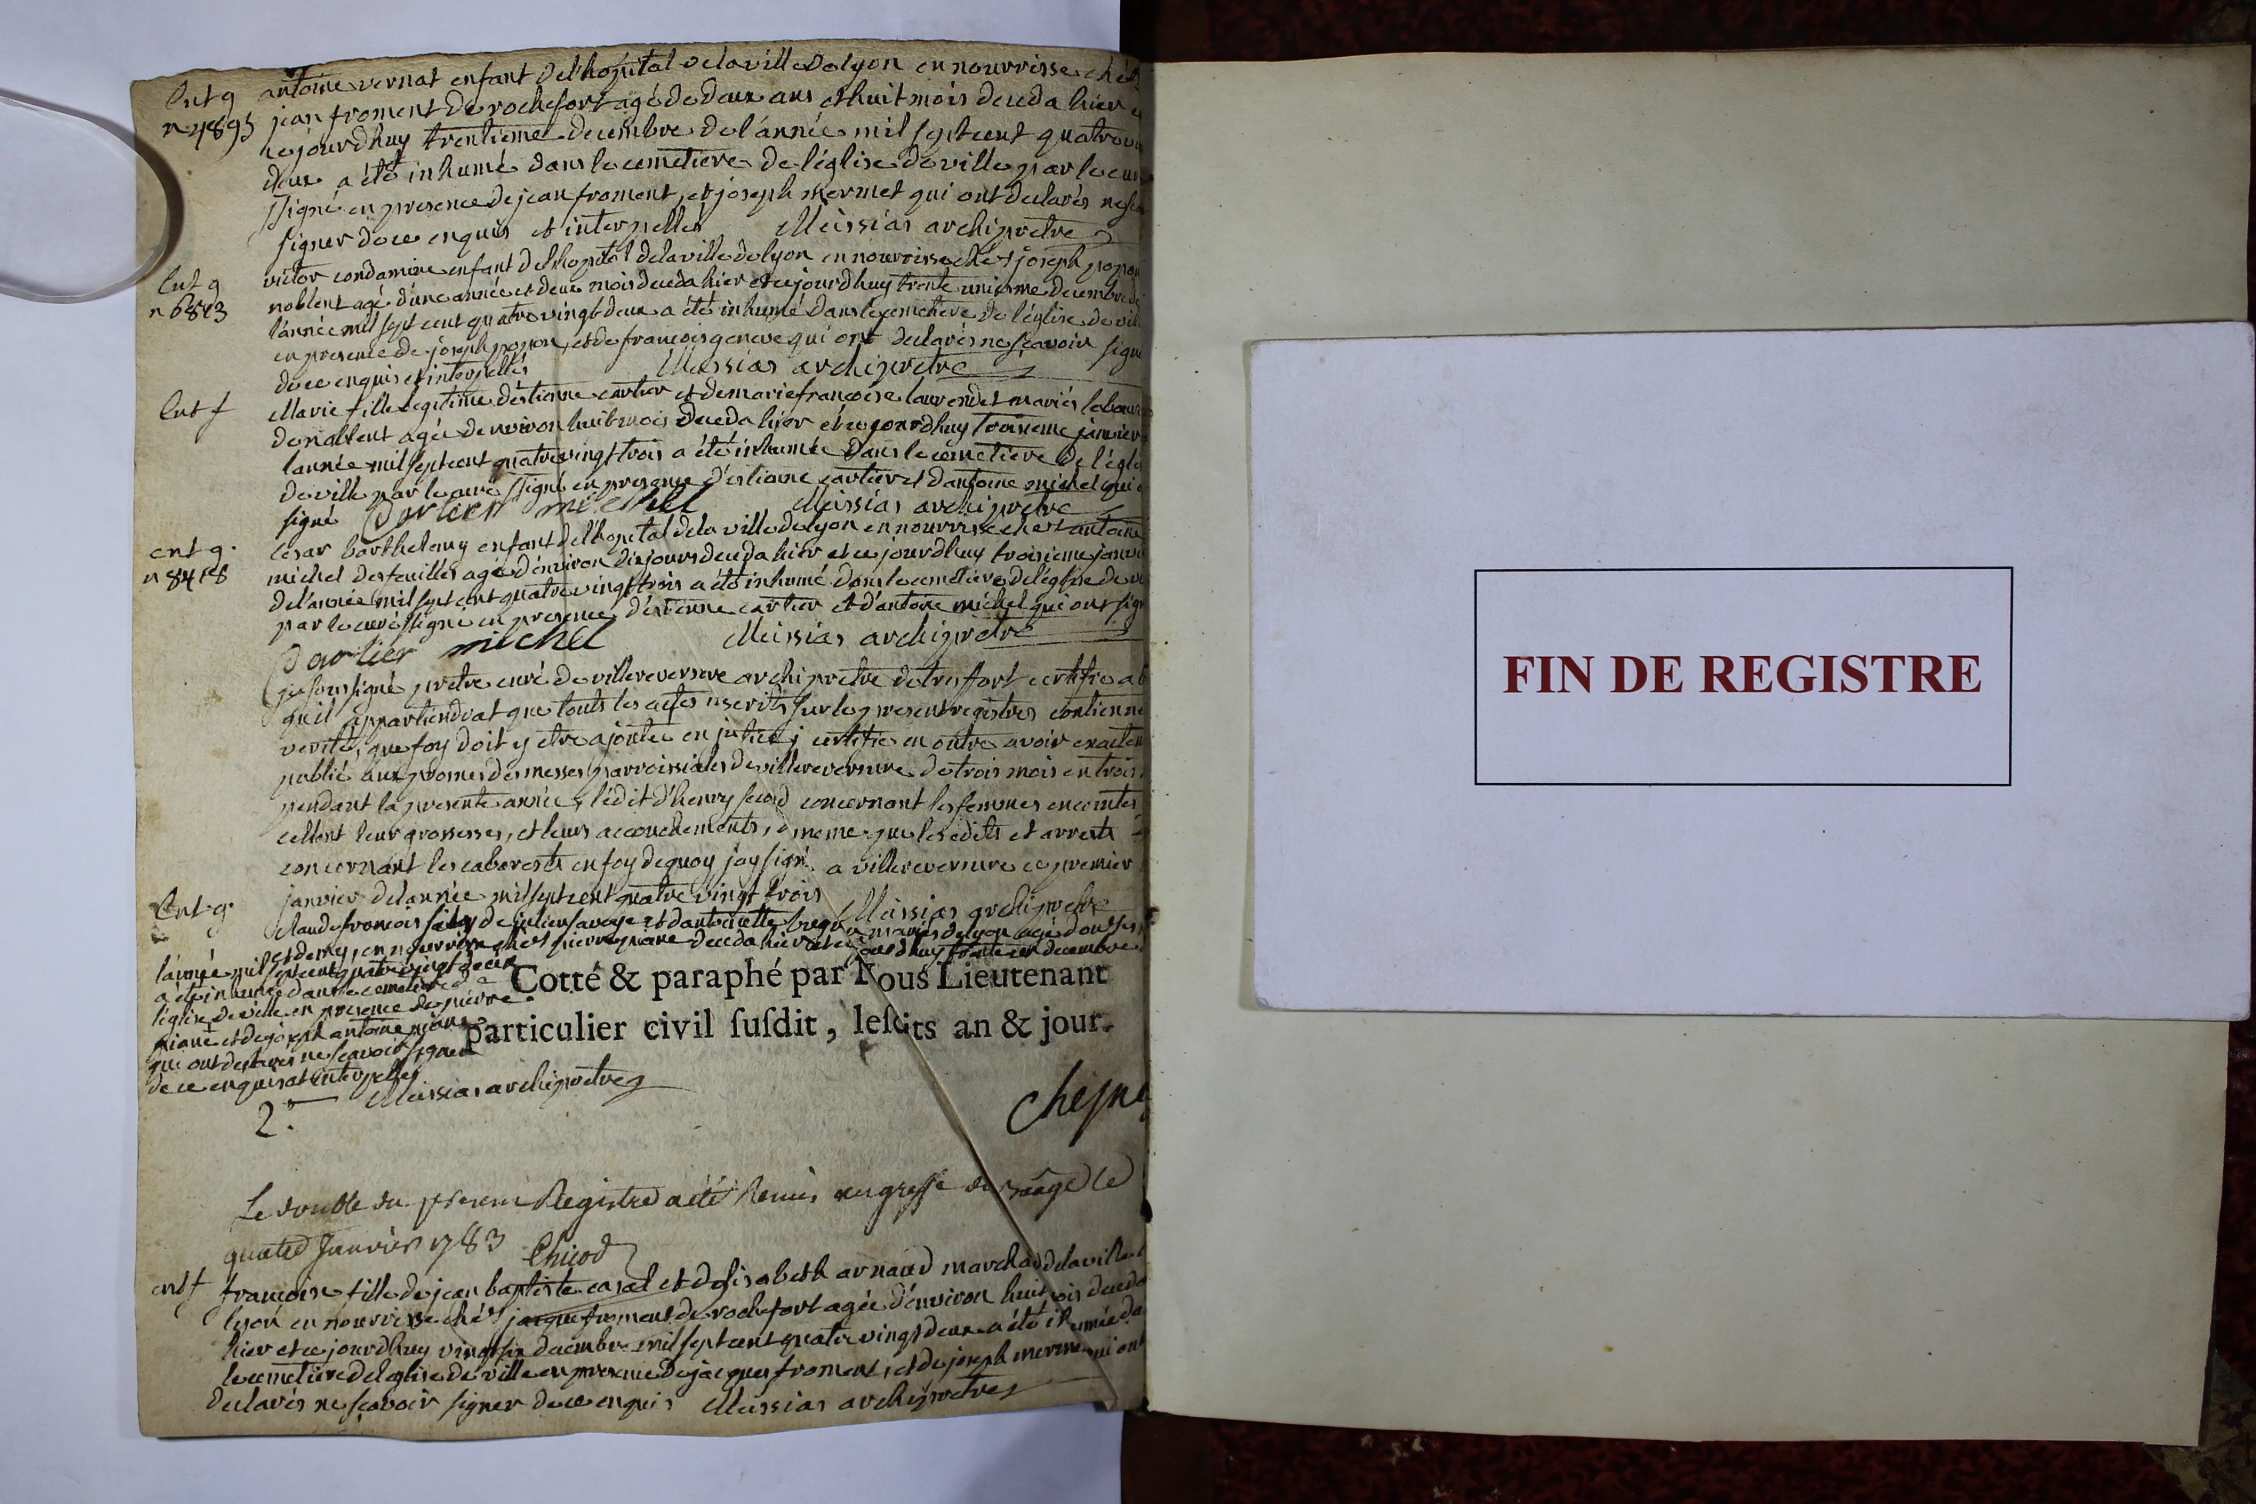 Ent g antoine vernat enfant de l'hopital de la ville de lyon en nourrisse chés
n 4895 jean froment de rochefort agé de deux ans et huit mois deceda hier et
cejourdhuy trentieme decembre de l'année mil sept cent quatrevin
deux a été inhumé dans le cemetiere de l'église de ville par le curé
ssigné en presence de jean froment, et joseph mermet qui ont declarés ne sca
signer de ce enquis et interpellés Meissias archipretre
Ent g victor condamine enfant de l'hopital de la ville de lyon en nourrisse chés joseph popon
n 6873 noblent agé d'une année et deux mois deceda hier et cejourdhuy trente unieme decembre de
l'année mil sept cent quatre vingt deux a été inhumé dans le cemetiere de l'église de vil
en presence de joseph popon, et de francois geneve qui ont declarés ne scavoir signe
de ce enquis et interpellés Meissias archipretre
Ent f Marie fille legitime d'estienne cartier et de marie francoise laurendet mariés labour
de noblent agée denviron huit mois deceda hier et cejourdhuy troisieme janvier
l'année mil sept cent quatre vingt trois a été inhumée dans le cemetiere de l'égli
de ville par le curé ssigné en presence d'estienne cartier et d'antoine michel qui o
signé Cartier michel Meissias archipretre
ent g. cesar barthelemy enfant de l'hopital de la ville de lyon en nourrisse chés antoine
n 8418 michel des feuilles agé d'environ dix jours deceda hier et ce jourdhuy troisieme janvi
de l'année mil sept cent quatre vingt trois a été inhumé dans le cemetiere de l'église de vi
par le curé ssigné en presence d'estienne cartier et d'antoine michel qui ont sign
Cartier michel Meissias archipretre
je soussigné pretre curé de villereversure archipretre de treffort certifie a
qu'il appartiendrat que touts les actes inscrits sur le present registres contienne
verité, que foy doit y etre ajoutée en justice, j certifie en outre avoir exactem
publié aux prones des messes parroissiales de villereversure de trois mois en trois
pendant la presente année, l'édit d'henry second concernant les femmes enceintes
cellent leur grossesses, et leurs accouchements, meme que les edits et arrests
concernant les cabarests en foy dequoy jay signé a villereversure ce premier
janvier de l'année mil sept cent quatre vingt trois Meissias archipretre
Ent g. claude francois fils de julien savoye et d'antoinette mariés de lyon agé d'ou
et demy, en nourrisse chés pierre piane deceda hier et ce jourdhuy trente un decembre
l'année mil sept cent quatre vingt deux
a été inhumé dans le cemetiere de
l'église de ville en presence de pierre
piane et de joseph antoine piane
qui ont declarés ne scavoir signer
de ce enquis et interpellés
Meissias archipretre
Cotté & paraphé par Nous Lieutenant
particulier civil ſuſdit, leſdits an & jour.
2.
Chesne
Le double du present Registre a été Remis au greffe de Bourg le
quatre Janvier 1783 Chicod
ent f francoise fille de jean baptiste casal et d'elisabeth arnaud marchad de la ville
lyon en nourrisse chés jacque froment de rochefort agée d'environ huit mois deceda
hier et ce jourdhuy vingt six decembre mil sept cent quatre vingt deux a été inhumée da
le cemetiere de l'eglise de ville en presence de jacques froment, et de joseph mermet qui ont
declarés ne scavoir signer de ce enquis Meissias archipretre
FIN DE REGISTRE